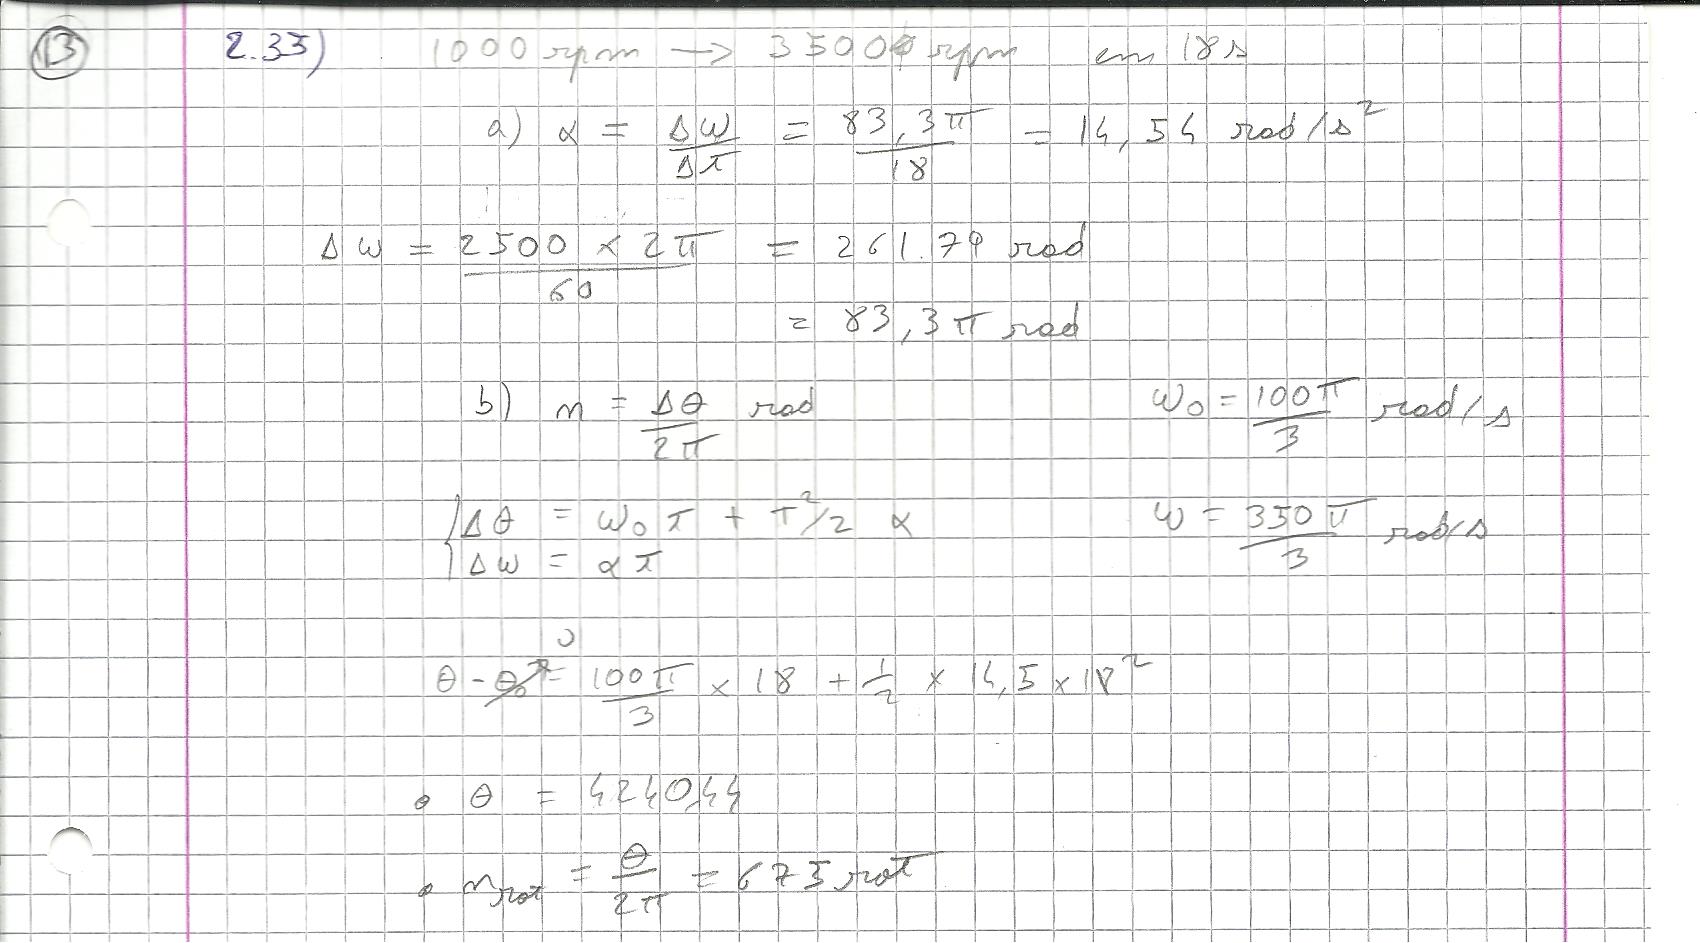 13 2.35) 1000 rpm → 3500 rpm em 18 s
a) α = Δω/Δt = 83,3π/18 = 14,54 rad/s²
Δω = 2500 × 2π/60 = 261.79 rad
= 83,3π rad
b) n = Δθ/2π rad ω₀ = 100π/3 rad/s
Δθ = ω₀t + t²/2 α ω = 350π/3 rad/s
Δω = αt
θ - θ₀ = 100π/3 × 18 + 1/2 × 14,5 × 18²
0
• θ = 4240,44
• n rot = θ/2π = 675 rot